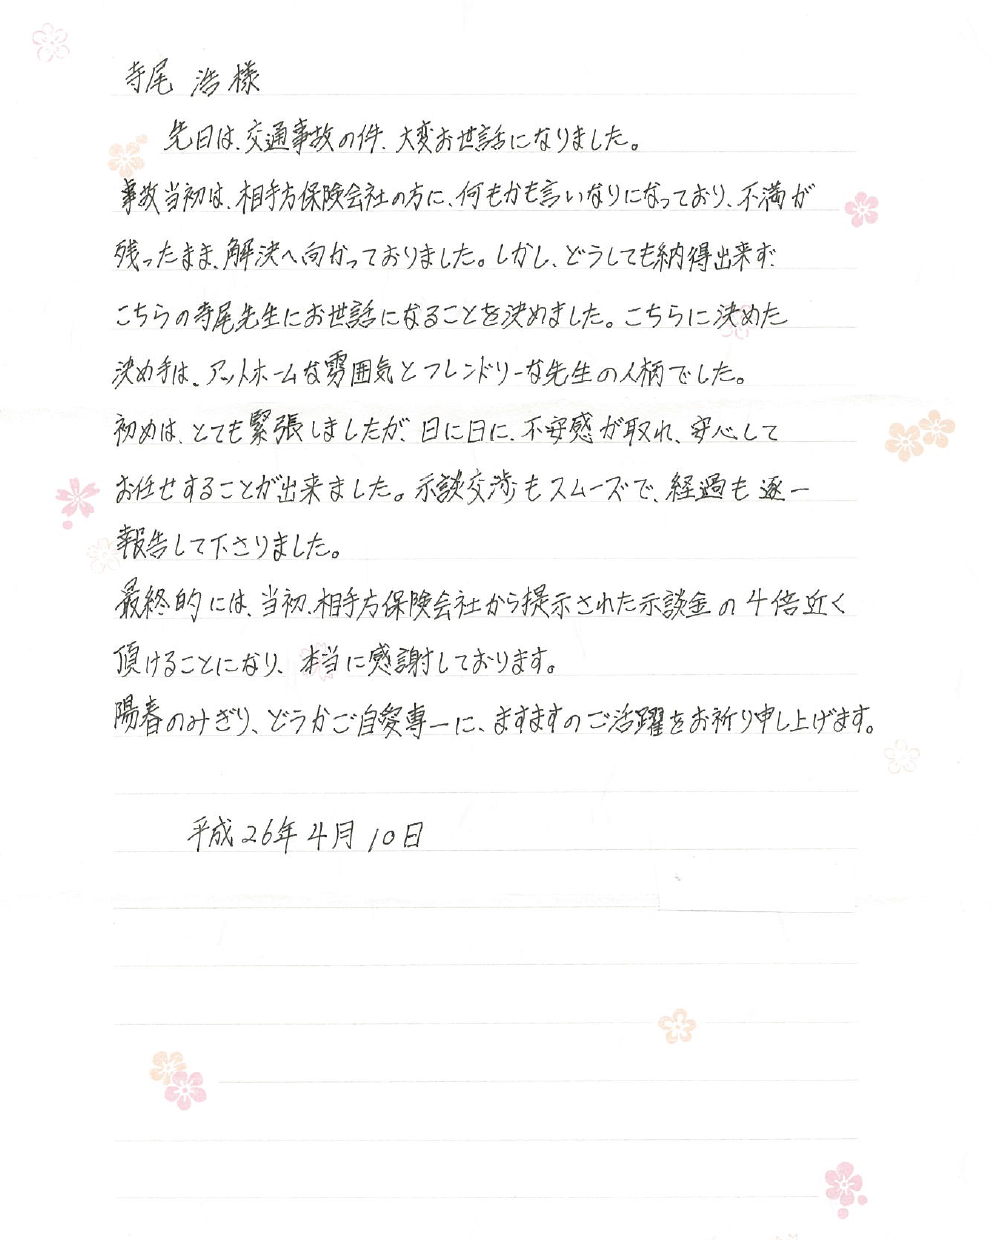 寺尾 浩様
先日は、交通事故の件、大変お世話になりました。
事故当初は、相手方保険会社の方に、何もかも言いなりになっており、不満が
残ったまま、解決へ向かっておりました。しかし、どうしても納得出来ず、
こちらの寺尾先生にお世話になることを決めました。こちらに決めた
決め手は、アットホームな雰囲気とフレンドリーな先生の人柄でした。
初めは、とても緊張しましたが、日に日に、不安感が取れ、安心して
お任せすることが出来ました。示談交渉もスムーズで、経過も逐一
報告して下さりました。
最終的には、当初、相手方保険会社から提示された示談金の4倍近く
頂けることになり、本当に感謝しております。
陽春のみぎり、どうかご自愛専一に、ますますのご活躍をお祈り申し上げます。
平成26年4月10日